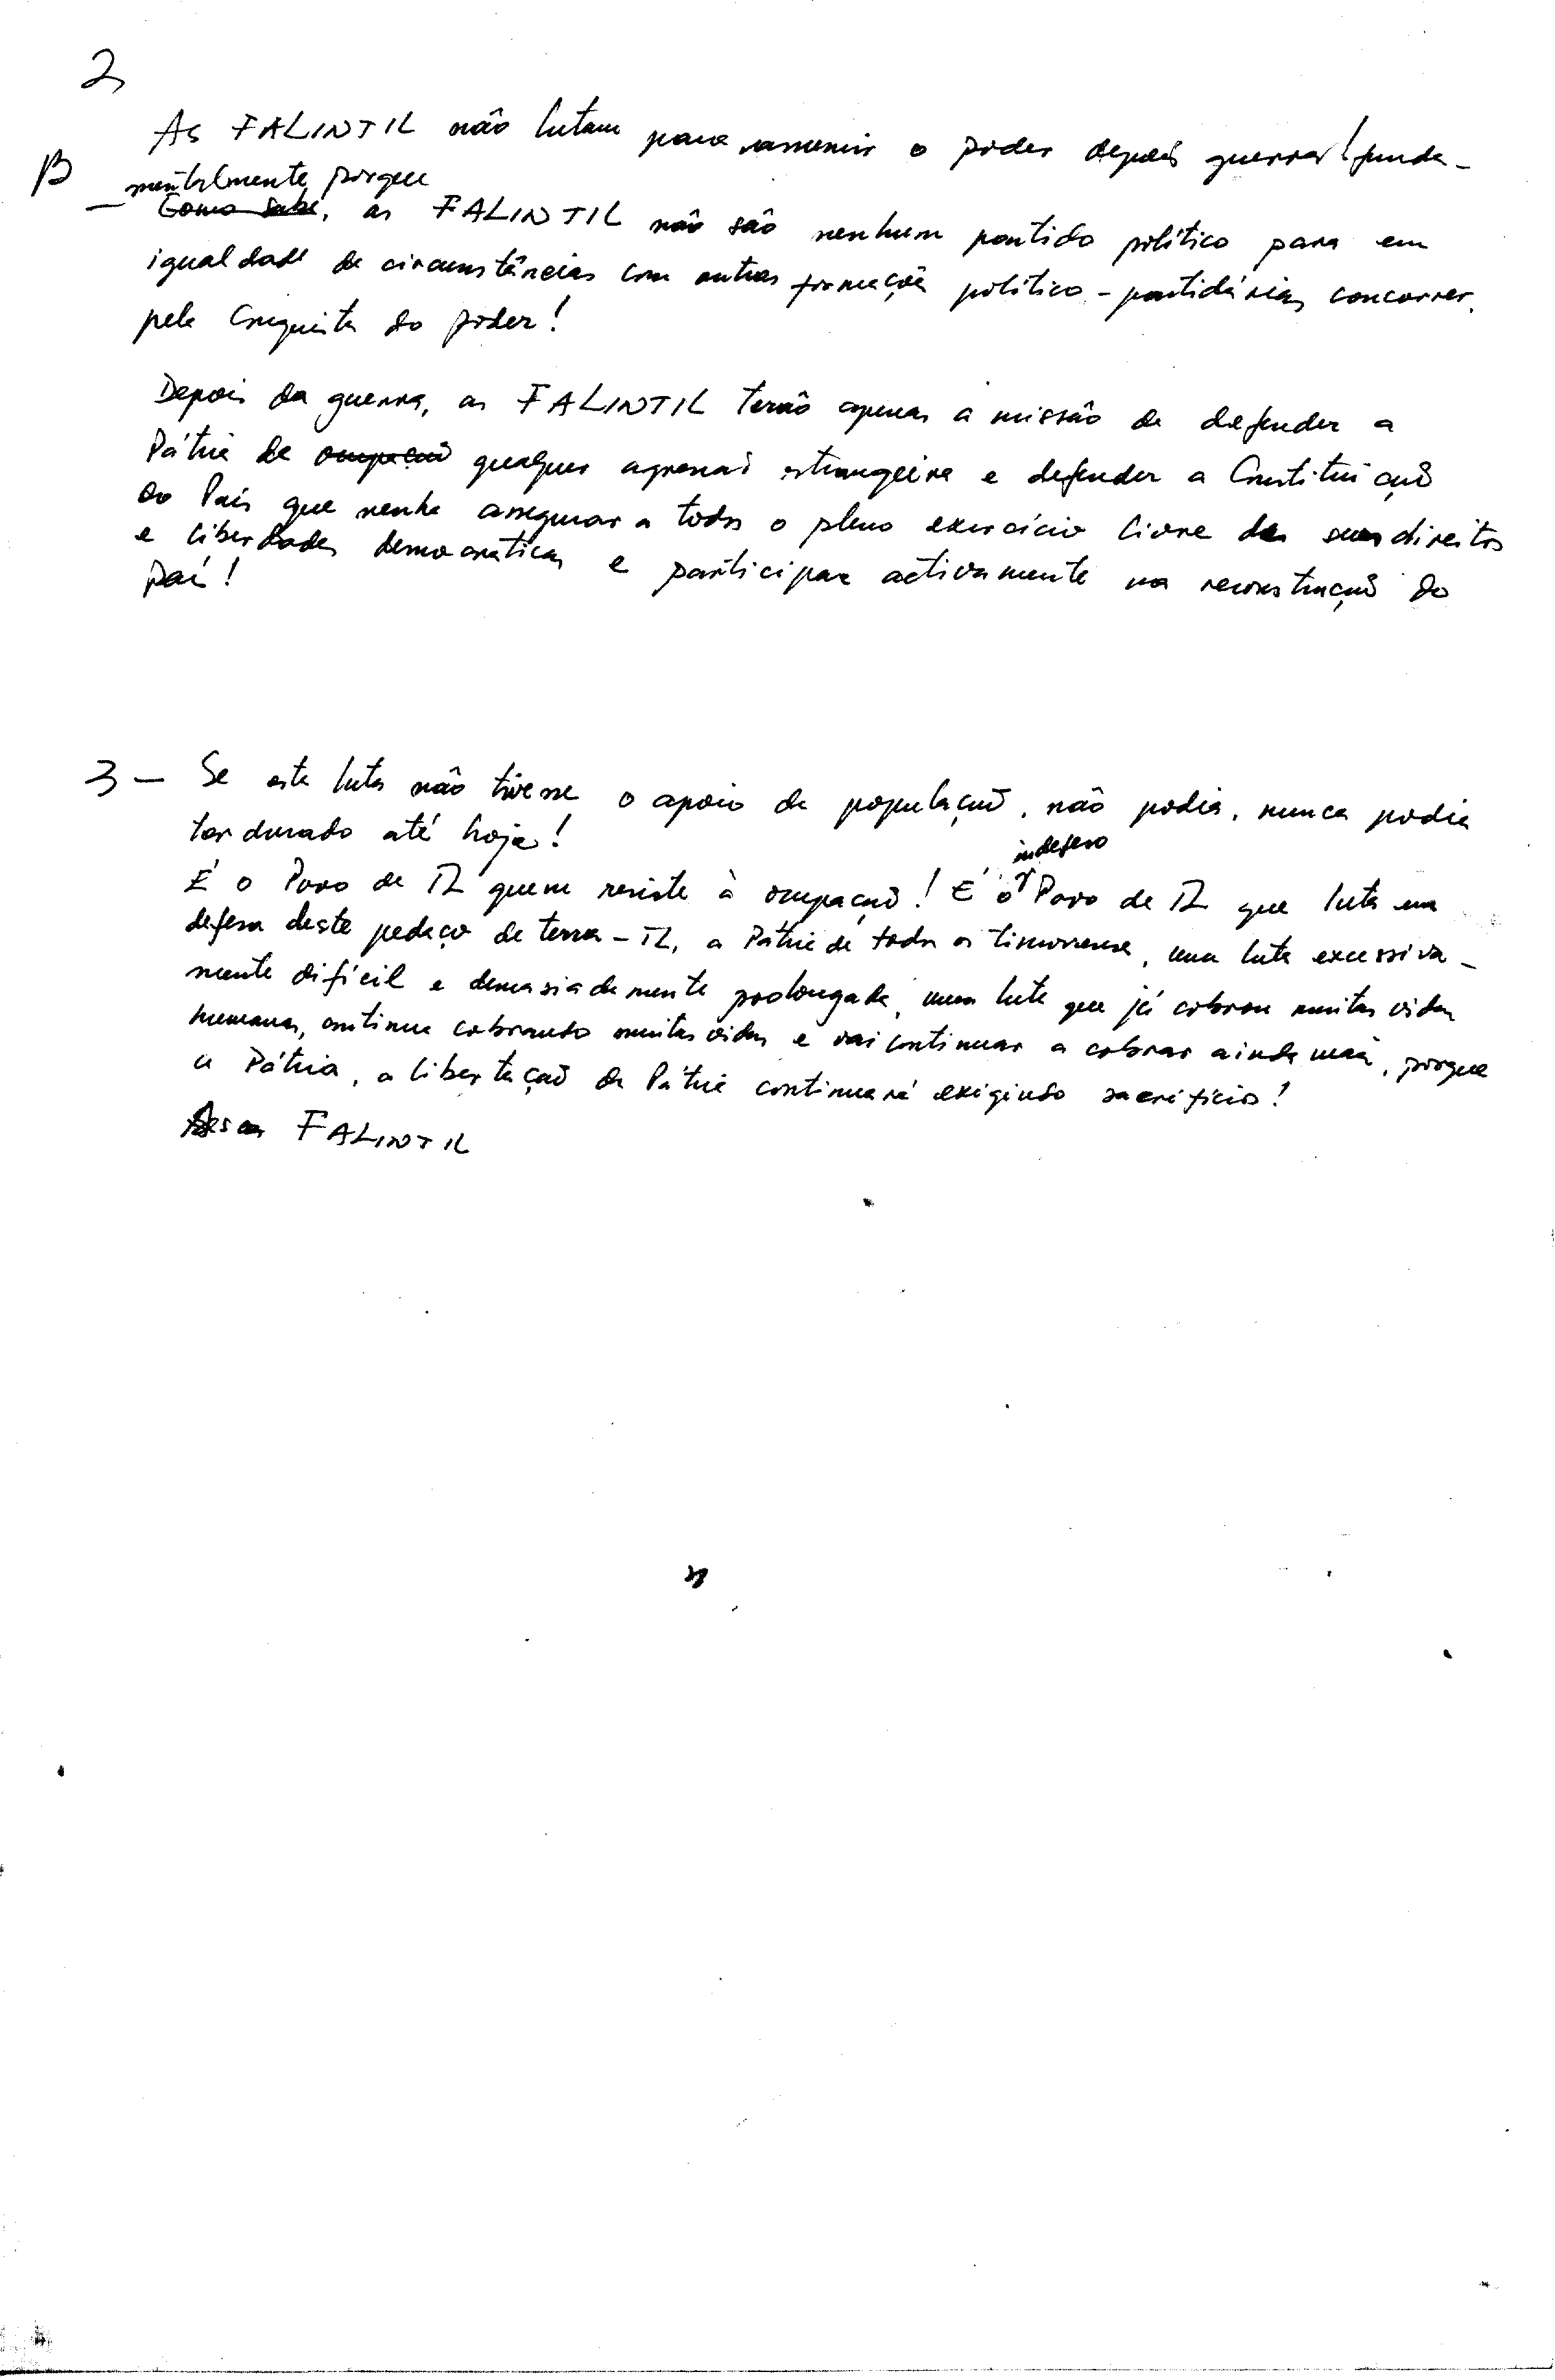 2
As FALINTIL não lutam para assumir o poder depois guerra funda-
B mentalmente porque
Como sabe, as FALINTIL não são nenhum partido político para em
igualdade de circunstâncias com outras formações político-partidárias concorrer
pela conquista do poder!
Depois da guerra, as FALINTIL terão apenas a missão de defender a
Pátria de ocupação qualquer agressão estrangeira e defender a Constituição
do País que venha assegurar a todos o pleno exercício livre de seus direitos
e liberdades democráticas e participar activamente na reconstrução do
País!
3 - Se esta luta não tivesse o apoio da população, não podia, nunca podia
ter durado até hoje!
indefeso
É o Povo de TL quem resiste à ocupação! É o Povo de TL que luta em
defesa deste pedaço de terra - TL, a Pátria de todos os timorenses, uma luta excessiva-
mente difícil e demasiadamente prolongada, uma luta que já cobrou muitas vidas
humanas, continua cobrando muitas vidas e vai continuar a cobrar ainda mais, porque
a Pátria, a libertação da Pátria continuará exigindo sacrifícios!
As FALINTIL